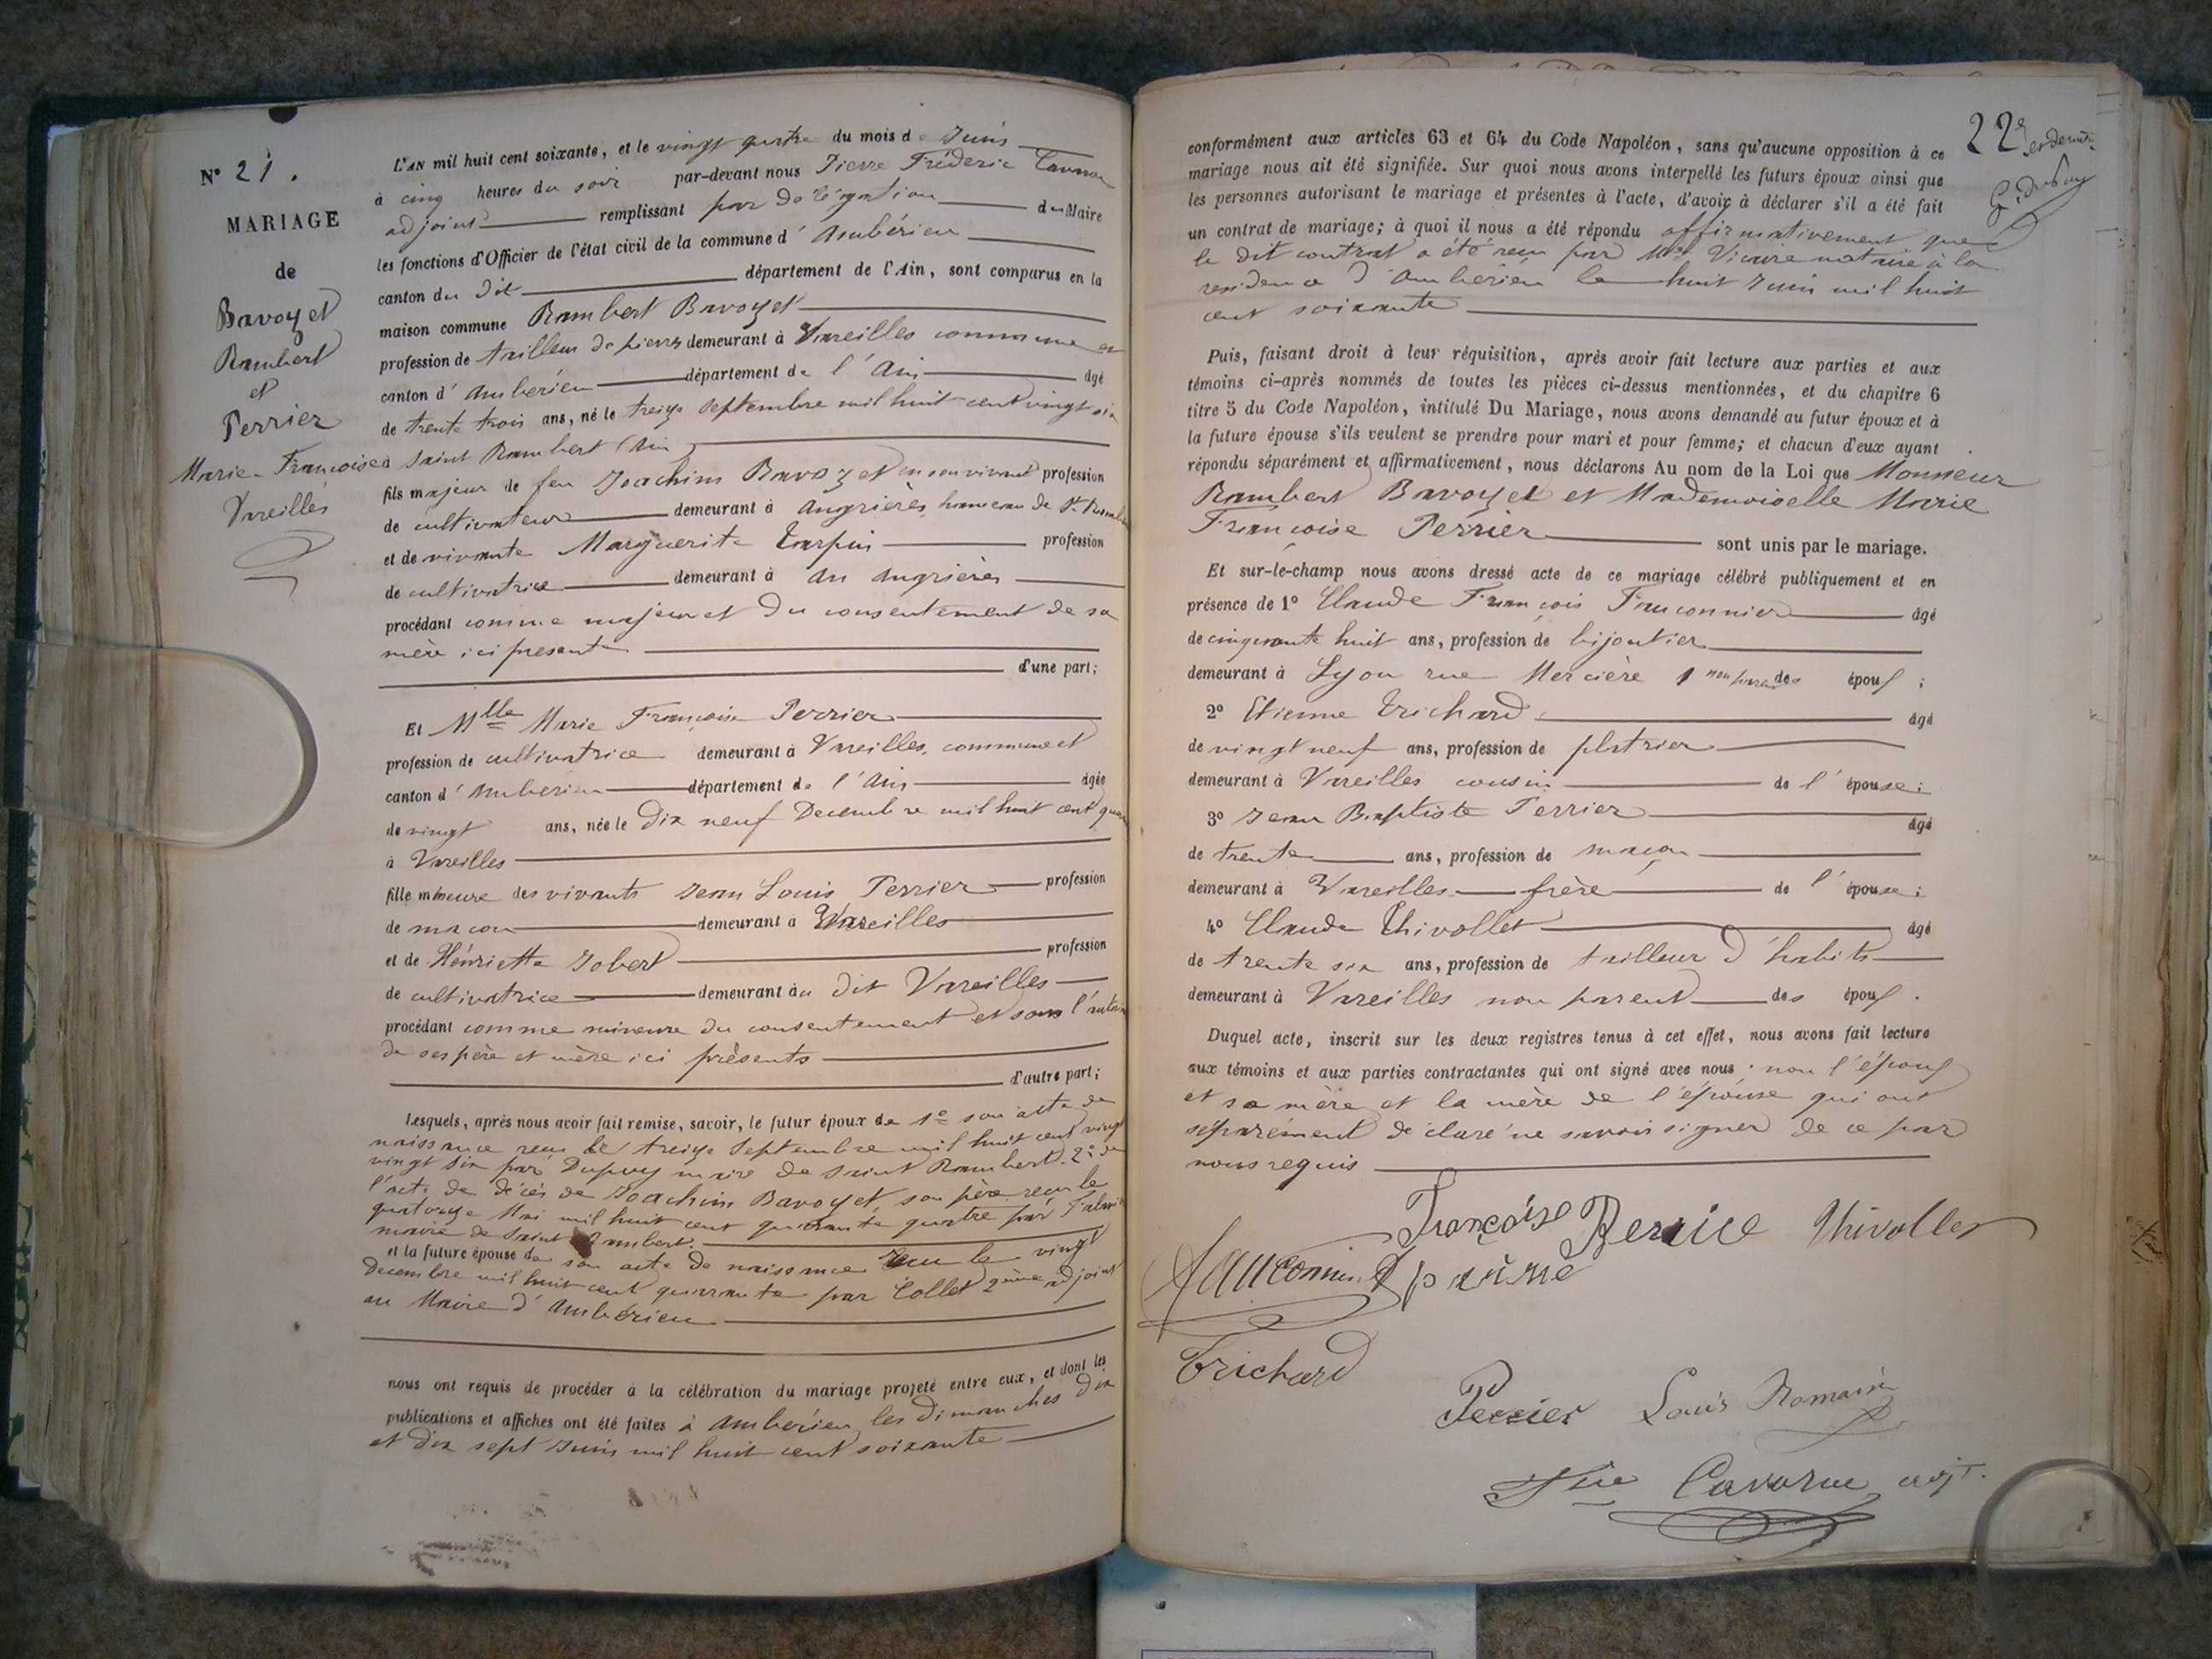 N° 21.
MARIAGE
de
Bavoyet
Rambert
et
Perrier
Marie-Françoise
Vareilles
L'AN mil huit cent soixante, et le vingt quatre du mois de Juin
à cinq heures du soir par-devant nous Pierre Fréderic
adjoint remplissant par délégation du Maire
les fonctions d'Officier de l'état civil de la commune d'Ambérieu
canton du dit département de l'Ain, sont comparus en la
maison commune Rambert Bavoyet
profession de tailleur de pierres demeurant à Vareilles commune et
canton d'Ambérieu département de l'Ain âgé
de trente trois ans, né le treize Septembre mil huit cent vingt six
à Saint Rambert (Ain)
fils majeur de feu Joachim Bavozet en son vivant profession
de cultivateur demeurant à Angrières, hameau de St. Rambert
et de vivante Marguerite Tarpin profession
de cultivatrice demeurant à du Angrières
procédant comme majeur et du consentement de sa
mère ici présente
d'une part;
Et Mlle Marie Françoise Perrier
profession de cultivatrice demeurant à Vareilles, commune et
canton d'Ambérieu département de l'Ain âgée
de vingt ans, née le dix neuf Decembre mil huit cent
à Vareilles
fille mineure des vivants Jean Louis Perrier profession
de maçon demeurant à Vareilles
et de Hénriette Jobert profession
de cultivatrice demeurant au dit Vareilles
procédant comme mineure du consentement et sous
de ses père et mère ici présents
d'autre part;
Lesquels, après nous avoir fait remise, savoir, le futur époux de 1° son acte de
naissance reçu le treize Septembre mil huit cent vingt
vingt six par Dupuy maire de Saint Rambert. 2° de
l'acte de décès de Joachim Bavoyet, son père reçu le
quatorze Mai mil huit cent quarante quatre par
maire de Saint Rambert.
et la future épouse de son acte de naissance reçu le vingt
Decembre mil huit cent quarante par Collet 2ème adjoint
au Maire d'Ambérieu
nous ont requis de procéder à la célébration du mariage projeté entre eux, et dont les
publications et affiches ont été faites à Ambérieu les dimanches dix
et dix sept Juin mil huit cent soixante
22e et dernier
conformément aux articles 63 et 64 du Code Napoléon, sans qu'aucune opposition à ce
mariage nous ait été signifiée. Sur quoi nous avons interpellé les futurs époux ainsi que
les personnes autorisant le mariage et présentes à l'acte, d'avoir à déclarer s'il a été fait
un contrat de mariage; à quoi il nous a été répondu affirmativement que
le dit contrat a été reçu par Me Vicaire notaire à la
residence d'Ambérieu le huit Juin mil huit
cent soixante
Puis, faisant droit à leur réquisition, après avoir fait lecture aux parties et aux
témoins ci-après nommés de toutes les pièces ci-dessus mentionnées, et du chapitre 6
titre 5 du Code Napoléon, intitulé Du Mariage, nous avons demandé au futur époux et à
la future épouse s'ils veulent se prendre pour mari et pour femme; et chacun d'eux ayant
répondu séparément et affirmativement, nous déclarons Au nom de la Loi que Monsieur
Rambert Bavoyet et Mademoiselle Marie
Françoise Perrier sont unis par le mariage.
Et sur-le-champ nous avons dressé acte de ce mariage célébré publiquement et en
présence de 1° Claude François Fauconnier âgé
de cinquante huit ans, profession de bijoutier
demeurant à Lyon rue Mercière 1 non parent des époux;
2° Etienne Trichard âgé
de vingt neuf ans, profession de platrier
demeurant à Vareilles cousin de l'épouse;
3° Jean Baptiste Perrier âgé
de trente ans, profession de maçon
demeurant à Vareilles frère de l'épouse;
4° Claude Thivollet âgé
de trente six ans, profession de tailleur d'habits
demeurant à Vareilles non parent des époux.
Duquel acte, inscrit sur les deux registres tenus à cet effet, nous avons fait lecture
aux témoins et aux parties contractantes qui ont signé avec nous; non l'époux
et sa mère et la mère de l'épouse qui ont
séparément déclaré ne savoir signer de ce par
nous requis
Françoise Thivollet
Trichard
Perrier Louis Romain
adjt.